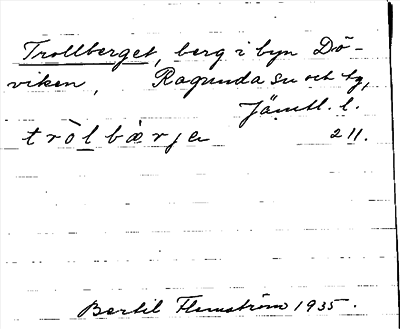 Trollberget, berg i byn Dö-
viken, Ragunda sn och tg,
Jämtl. l.
tròlbærje 211.
Bertil Flemström 1935.